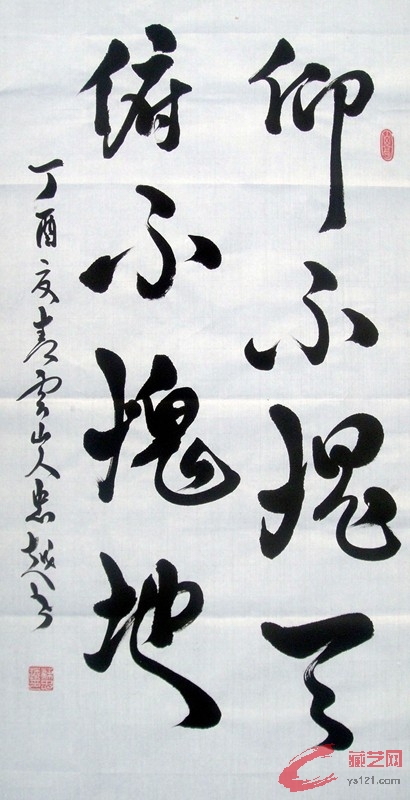 仰不愧天
俯不愧地
丁酉夏青云山人忠越书
藏艺网
ys121.com